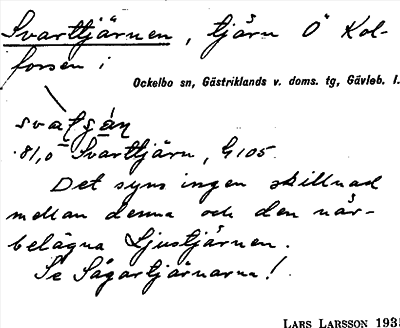 Svarttjärnen, tjärn Ö Kol-
forsen i
Ockelbo sn, Gästriklands v. doms. tg, Gävleb. l.
svatₐn
81,0 Svarttjärn, G 105.
Det syns ingen skillnad
mellan denna och den när-
belägna Ljustjärnen.
Se Sågartjärnarna!
LARS LARSSON 193